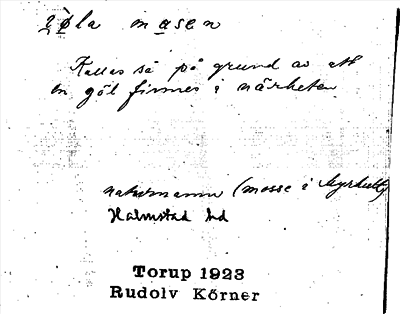 gøla masen
Kallas så på grund av att
en göl finnes i närheten
naturnamn (mosse i Myrhult)
Halmstad hd
Torup 1923
Rudolv Körner